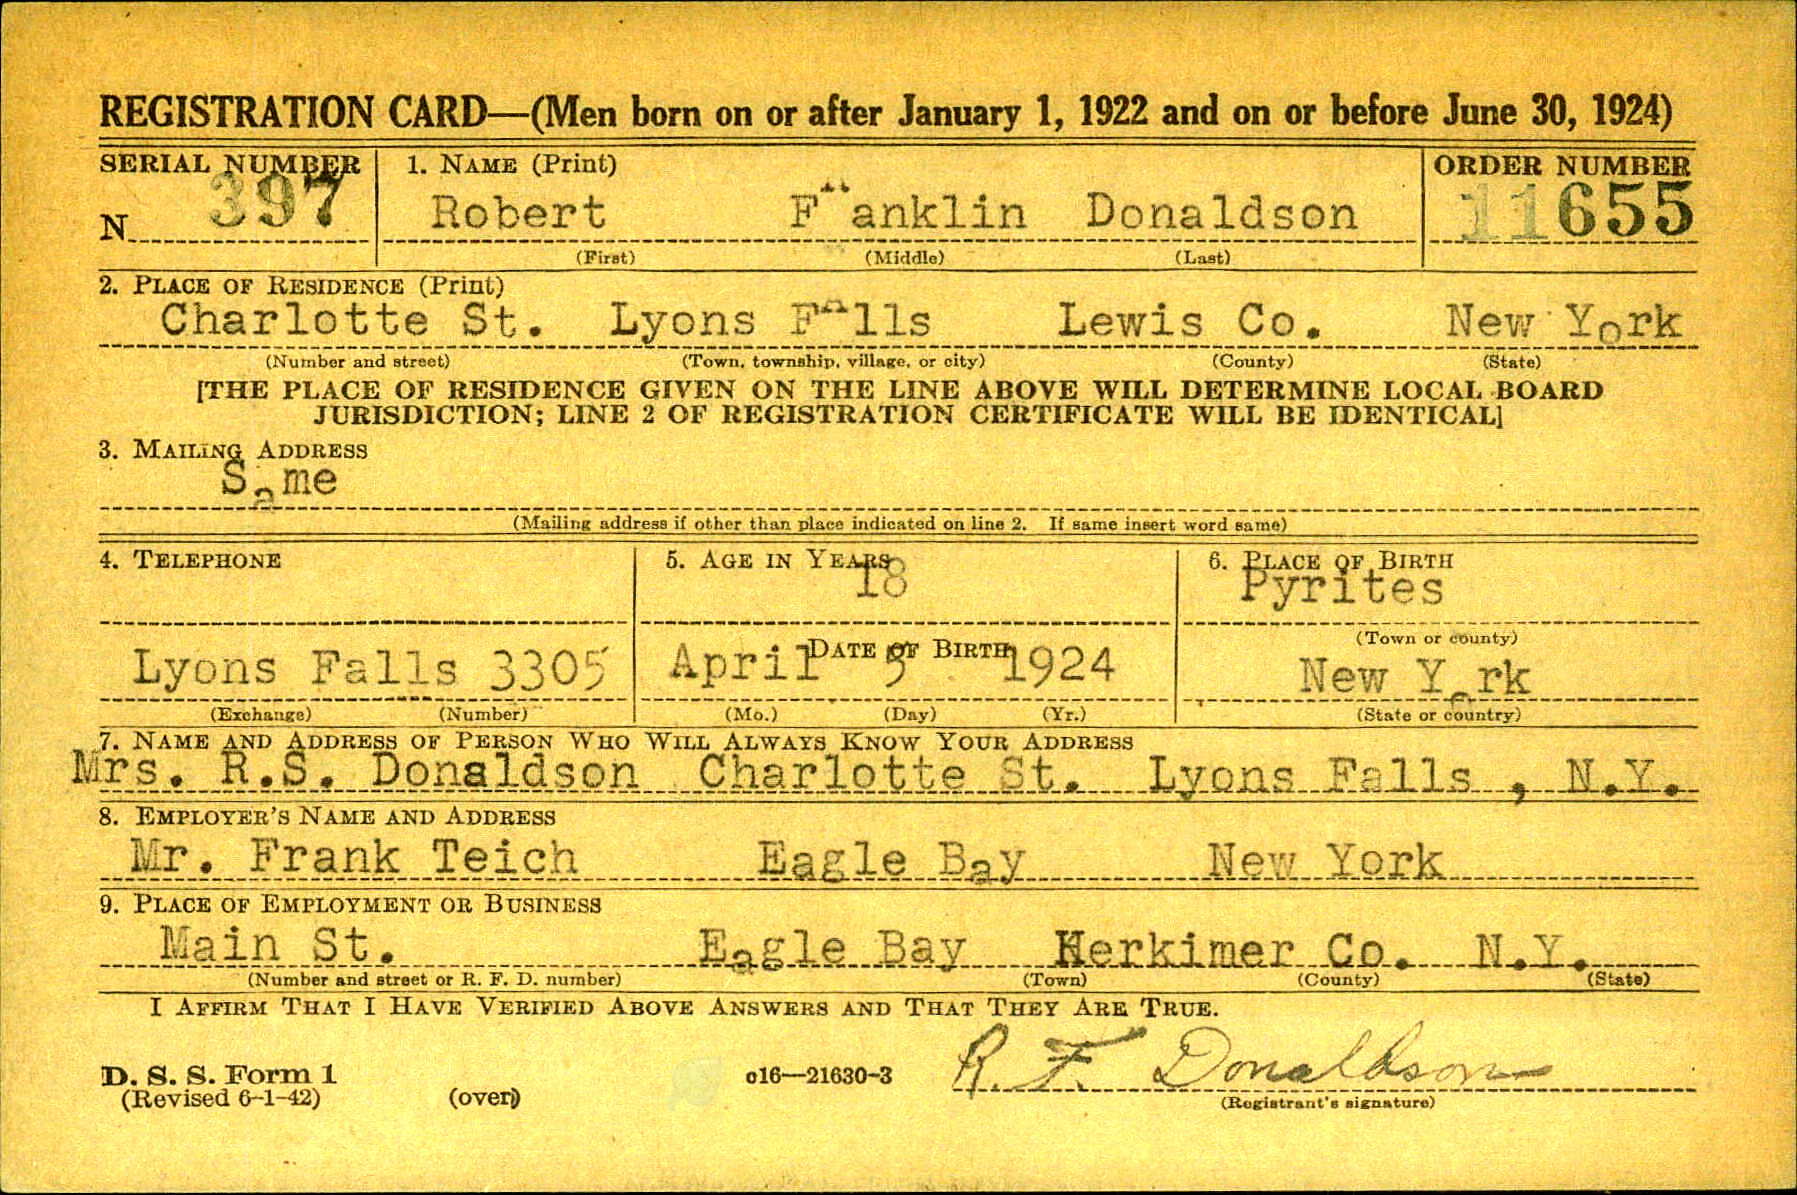 REGISTRATION CARD—(Men born on or after January 1, 1922 and on or before June 30, 1924)
SERIAL NUMBER 1. NAME (Print) ORDER NUMBER
N 397 Robert Franklin Donaldson 11655
(First) (Middle) (Last)
2. PLACE OF RESIDENCE (Print)
Charlotte St. Lyons Falls Lewis Co. New York
(Number and street) (Town, township, village, or city) (County) (State)
[THE PLACE OF RESIDENCE GIVEN ON THE LINE ABOVE WILL DETERMINE LOCAL BOARD
JURISDICTION; LINE 2 OF REGISTRATION CERTIFICATE WILL BE IDENTICAL]
3. MAILING ADDRESS
Same
(Mailing address if other than place indicated on line 2. If same insert word same)
4. TELEPHONE 5. AGE IN YEARS 6. PLACE OF BIRTH
18 Pyrites
DATE OF BIRTH (Town or county)
Lyons Falls 3305 April 5 1924 New York
(Exchange) (Number) (Mo.) (Day) (Yr.) (State or country)
7. NAME AND ADDRESS OF PERSON WHO WILL ALWAYS KNOW YOUR ADDRESS
Mrs. R.S. Donaldson Charlotte St. Lyons Falls , N.Y.
8. EMPLOYER'S NAME AND ADDRESS
Mr. Frank Teich Eagle Bay New York
9. PLACE OF EMPLOYMENT OR BUSINESS
Main St. Eagle Bay Herkimer Co. N.Y.
(Number and street or R. F. D. number) (Town) (County) (State)
I AFFIRM THAT I HAVE VERIFIED ABOVE ANSWERS AND THAT THEY ARE TRUE.
R. F. Donaldson
D. S. S. Form 1 c16—21630-3
(Revised 6-1-42) (over) (Registrant's signature)